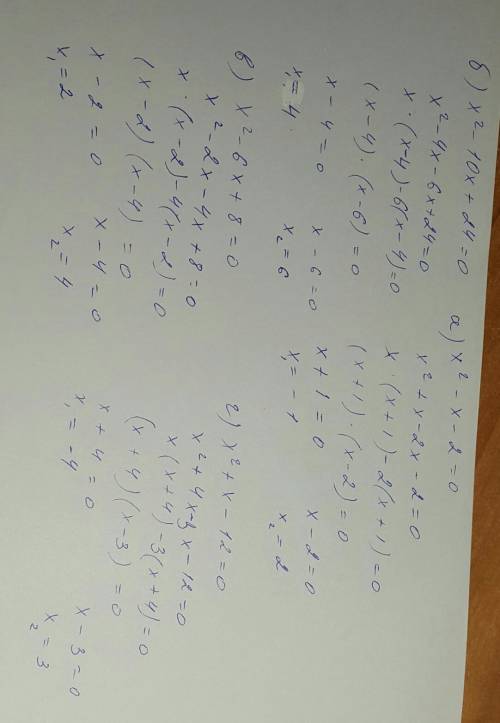 б) x² - 10x + 24 = 0
x² - 4x - 6x + 24 = 0
x · (x - 4) - 6(x - 4) = 0
(x - 4) · (x - 6) = 0
x - 4 = 0 x - 6 = 0
x₁ = 4 x₂ = 6
а) x² - x - 2 = 0
x² + x - 2x - 2 = 0
x · (x + 1) - 2(x + 1) = 0
(x + 1) · (x - 2) = 0
x + 1 = 0 x - 2 = 0
x₁ = -1 x₂ = 2
в) x² - 6x + 8 = 0
x² - 2x - 4x + 8 = 0
x · (x - 2) - 4(x - 2) = 0
(x - 2) (x - 4) = 0
x - 2 = 0 x - 4 = 0
x₁ = 2 x₂ = 4
г) x² + x - 12 = 0
x² + 4x - 3x - 12 = 0
x (x + 4) - 3(x + 4) = 0
(x + 4) (x - 3) = 0
x + 4 = 0 x - 3 = 0
x₁ = -4 x₂ = 3